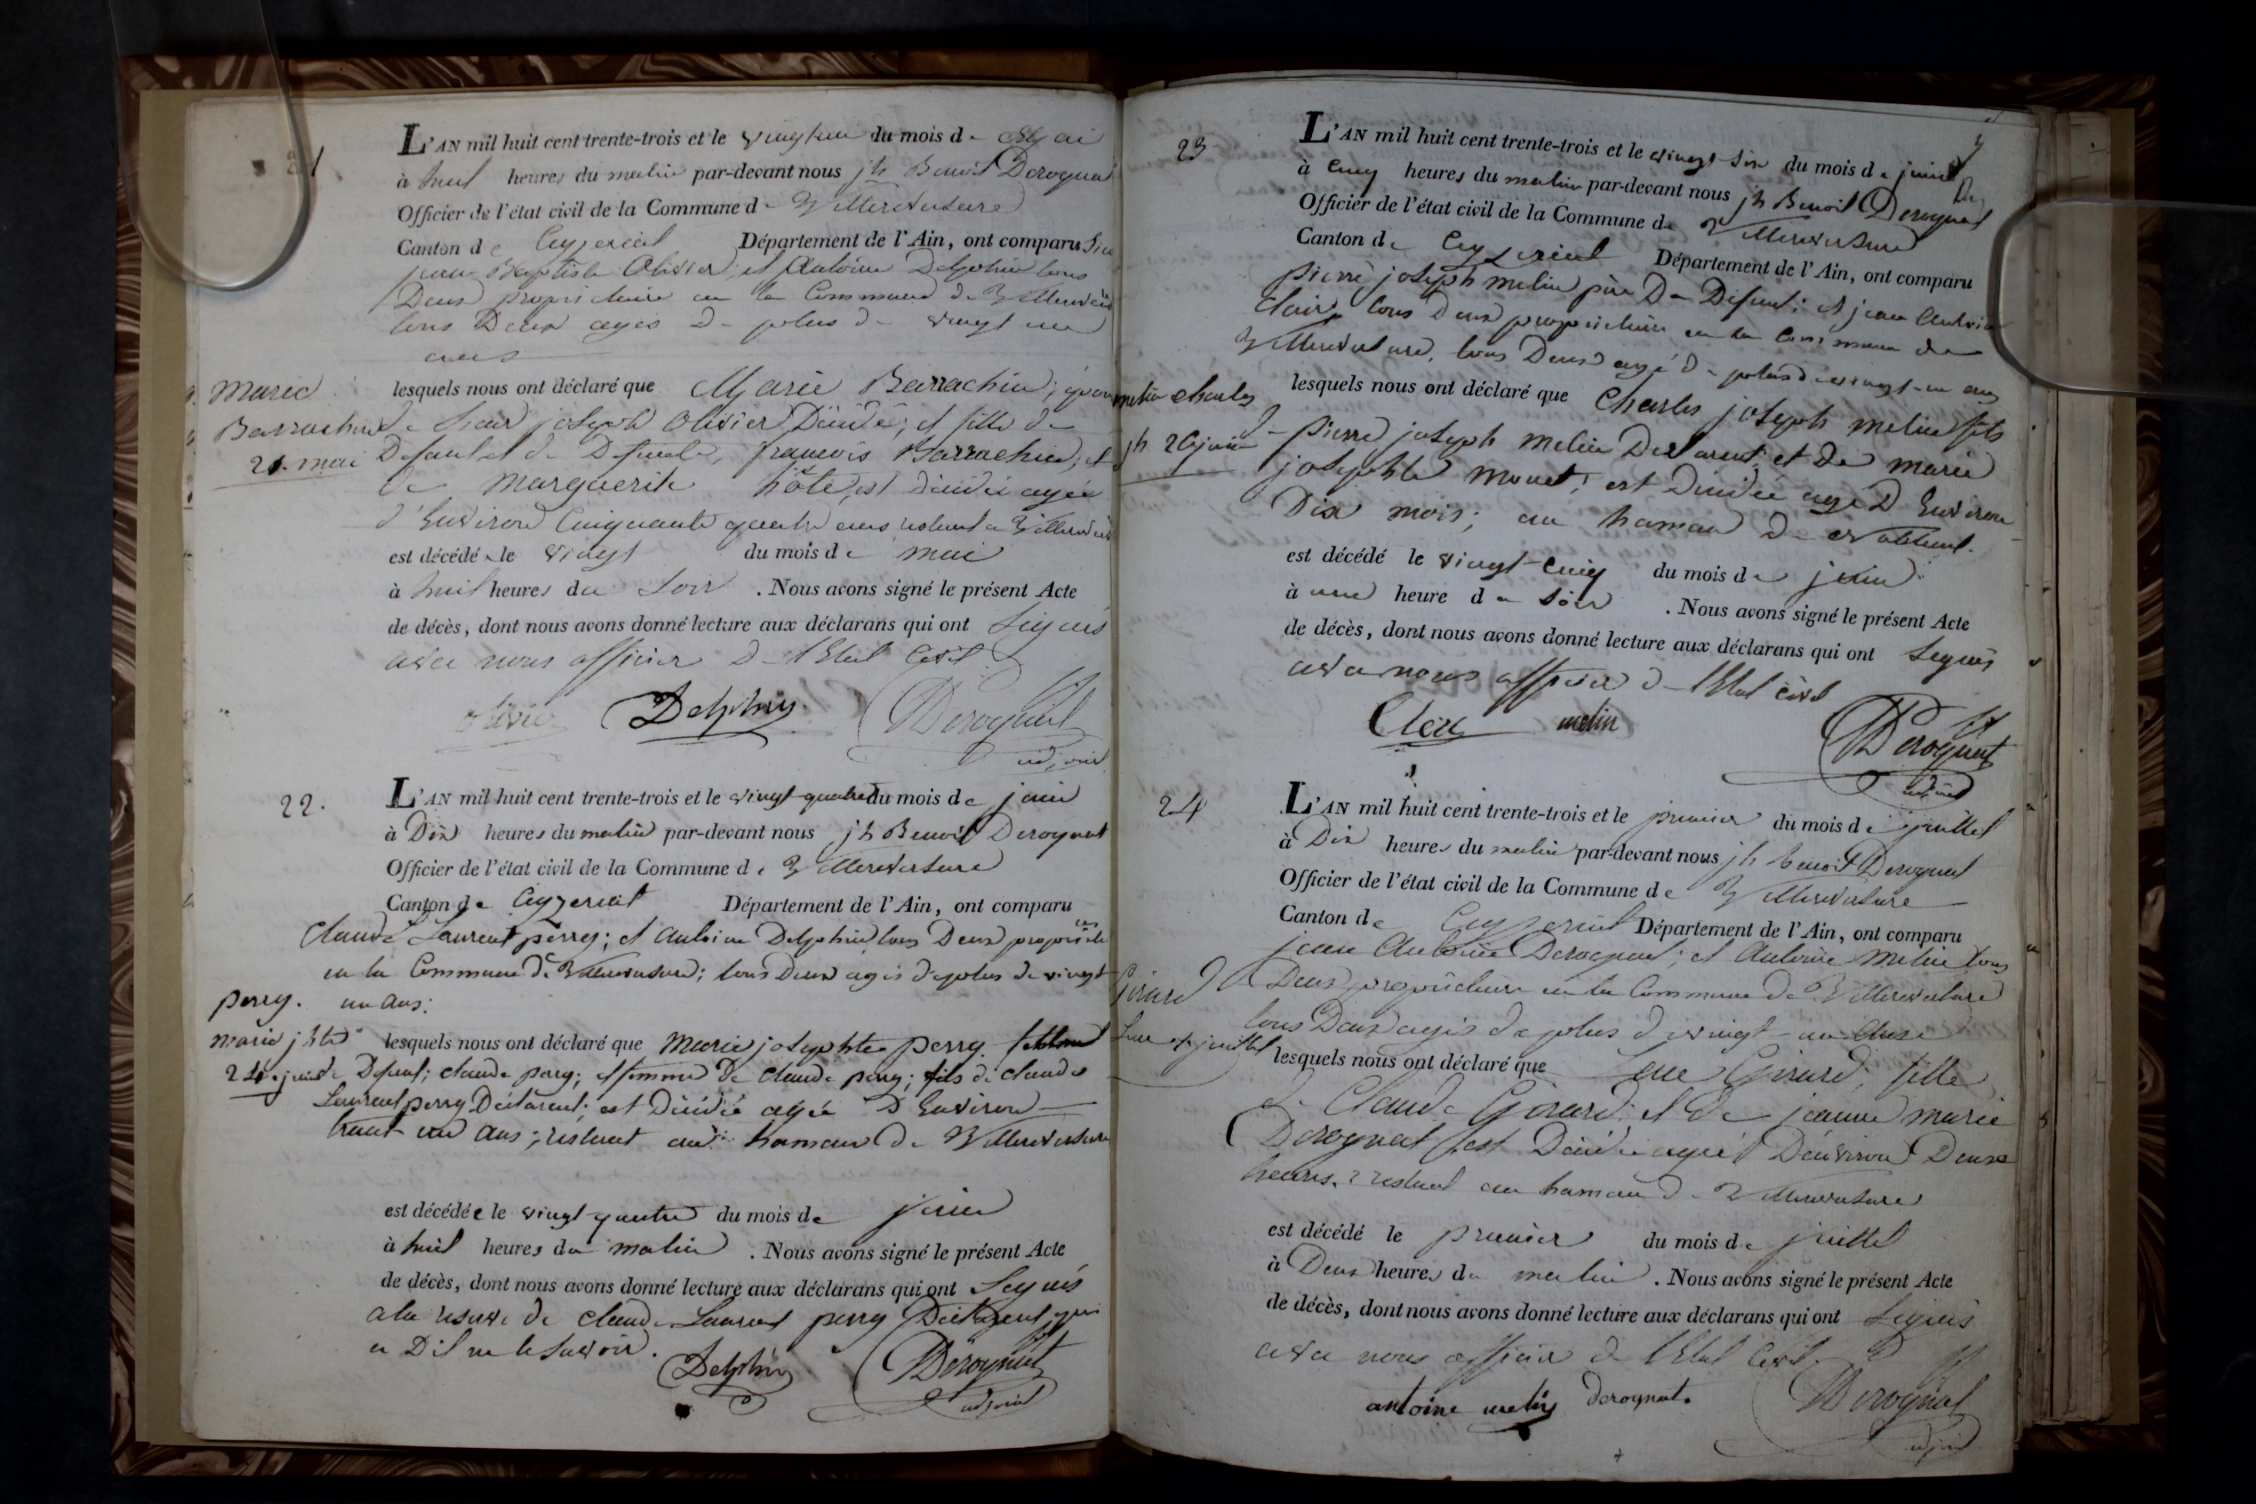 21
L'AN mil huit cent trente-trois et le vingt un du mois de Mai
à huit heures du matin par-devant nous jh Benoit Derognat
Officier de l'état civil de la Commune de Villereversure
Canton de Ceyzeriat Département de l'Ain, ont comparu
jean Baptiste Olivier; et Antoine Delphin tous
Deux propriétaire en la Commune de Villerevers
tous Deux agés de plus de vingt un
ans
Marie
Barrachin
21. mai
lesquels nous ont déclaré que Marie Barrachin;
de joseph Olivier Décédé; et fille de
Defunt et de Defunte, francois Barrachin; et
de Marguerite est décédée agée
d'Environ Cinquante quatre ans restant a Villerevers
est décédée le vingt du mois de mai
à huit heures du Soir. Nous avons signé le présent Acte
de décès, dont nous avons donné lecture aux déclarans qui ont Signés
avec nous officier de l'Etat Civil
olivier Delphin Derognat
adjoint
22.
L'AN mil huit cent trente-trois et le vingt-quatre du mois de juin
à Dix heures du matin par-devant nous jh Benoit Derognat
Officier de l'état civil de la Commune de Villereversure
Canton de Ceyzeriat Département de l'Ain, ont comparu
Claude Laurent perry; et Antoine Delphin tous Deux propriétaires
en la Commune de Villereversure; tous Deux agés de plus de vingt
un ans:
perry.
marie jhte
24. juin
lesquels nous ont déclaré que Marie josephte perry.
de Defunt; claude perry; et femme de claude perry; fils de claude
Laurent perry Déclarant; est Décédée agée D'Environ
trent un ans; restant au hamau de Villereversure
est décédée le vingt-quatre du mois de juin
à huit heures du matin. Nous avons signé le présent Acte
de décès, dont nous avons donné lecture aux déclarans qui ont Signés
a la reserve de claude Laurent perry Déclarent; qui
a Dit ne le Savoir.
Delphin Derognat
adjoint
23
L'AN mil huit cent trente-trois et le vingt-six du mois de juin
à Cinq heures du matin par-devant nous jh Benoit Derognat
Officier de l'état civil de la Commune de Villereversure
Canton de Ceyzeriat Département de l'Ain, ont comparu
pierre joseph melin père De Defunt; et jean Antoine
Clair, tous Deux propriétaire en la Commune de
Villereversure. tous Deux agé de plus de vingt-un ans
melin charles
jh 26 juin
lesquels nous ont déclaré que Charles joseph melin fils
de pierre joseph melin Declarent; et De marie
josephte monet; est Décédé agé D'Environ
Dix mois; au hamau de
est décédé le vingt-cinq du mois de juin
à une heure du Soir. Nous avons signé le présent Acte
de décès, dont nous avons donné lecture aux déclarans qui ont Signés
avec nous officier de l'Etat civil
Clerc melin Derognat
adjoint
24
L'AN mil huit cent trente-trois et le premier du mois de juillet
à Dix heures du matin par-devant nous jh Benoit Derognat
Officier de l'état civil de la Commune de Villereversure
Canton de Ceyzeriat Département de l'Ain, ont comparu
jean Antoine Derognat; et Antoine Melin tous
Deux propriétaire en la Commune de Villereversure
tous Deux agés de plus de vingt-un ans
Girard
juillet
lesquels nous ont déclaré que Girard; fille
de Claude Girard; et De jeanne marie
Derognat est Décédée agée D'environ Deux
heures. restant au hamau de Villereversure
est décédé le premier du mois de juillet
à Deux heures du matin. Nous avons signé le présent Acte
de décès, dont nous avons donné lecture aux déclarans qui ont Signés
avec nous officier de l'Etat Civil.
antoine melin derognat. Derognat
adjoint